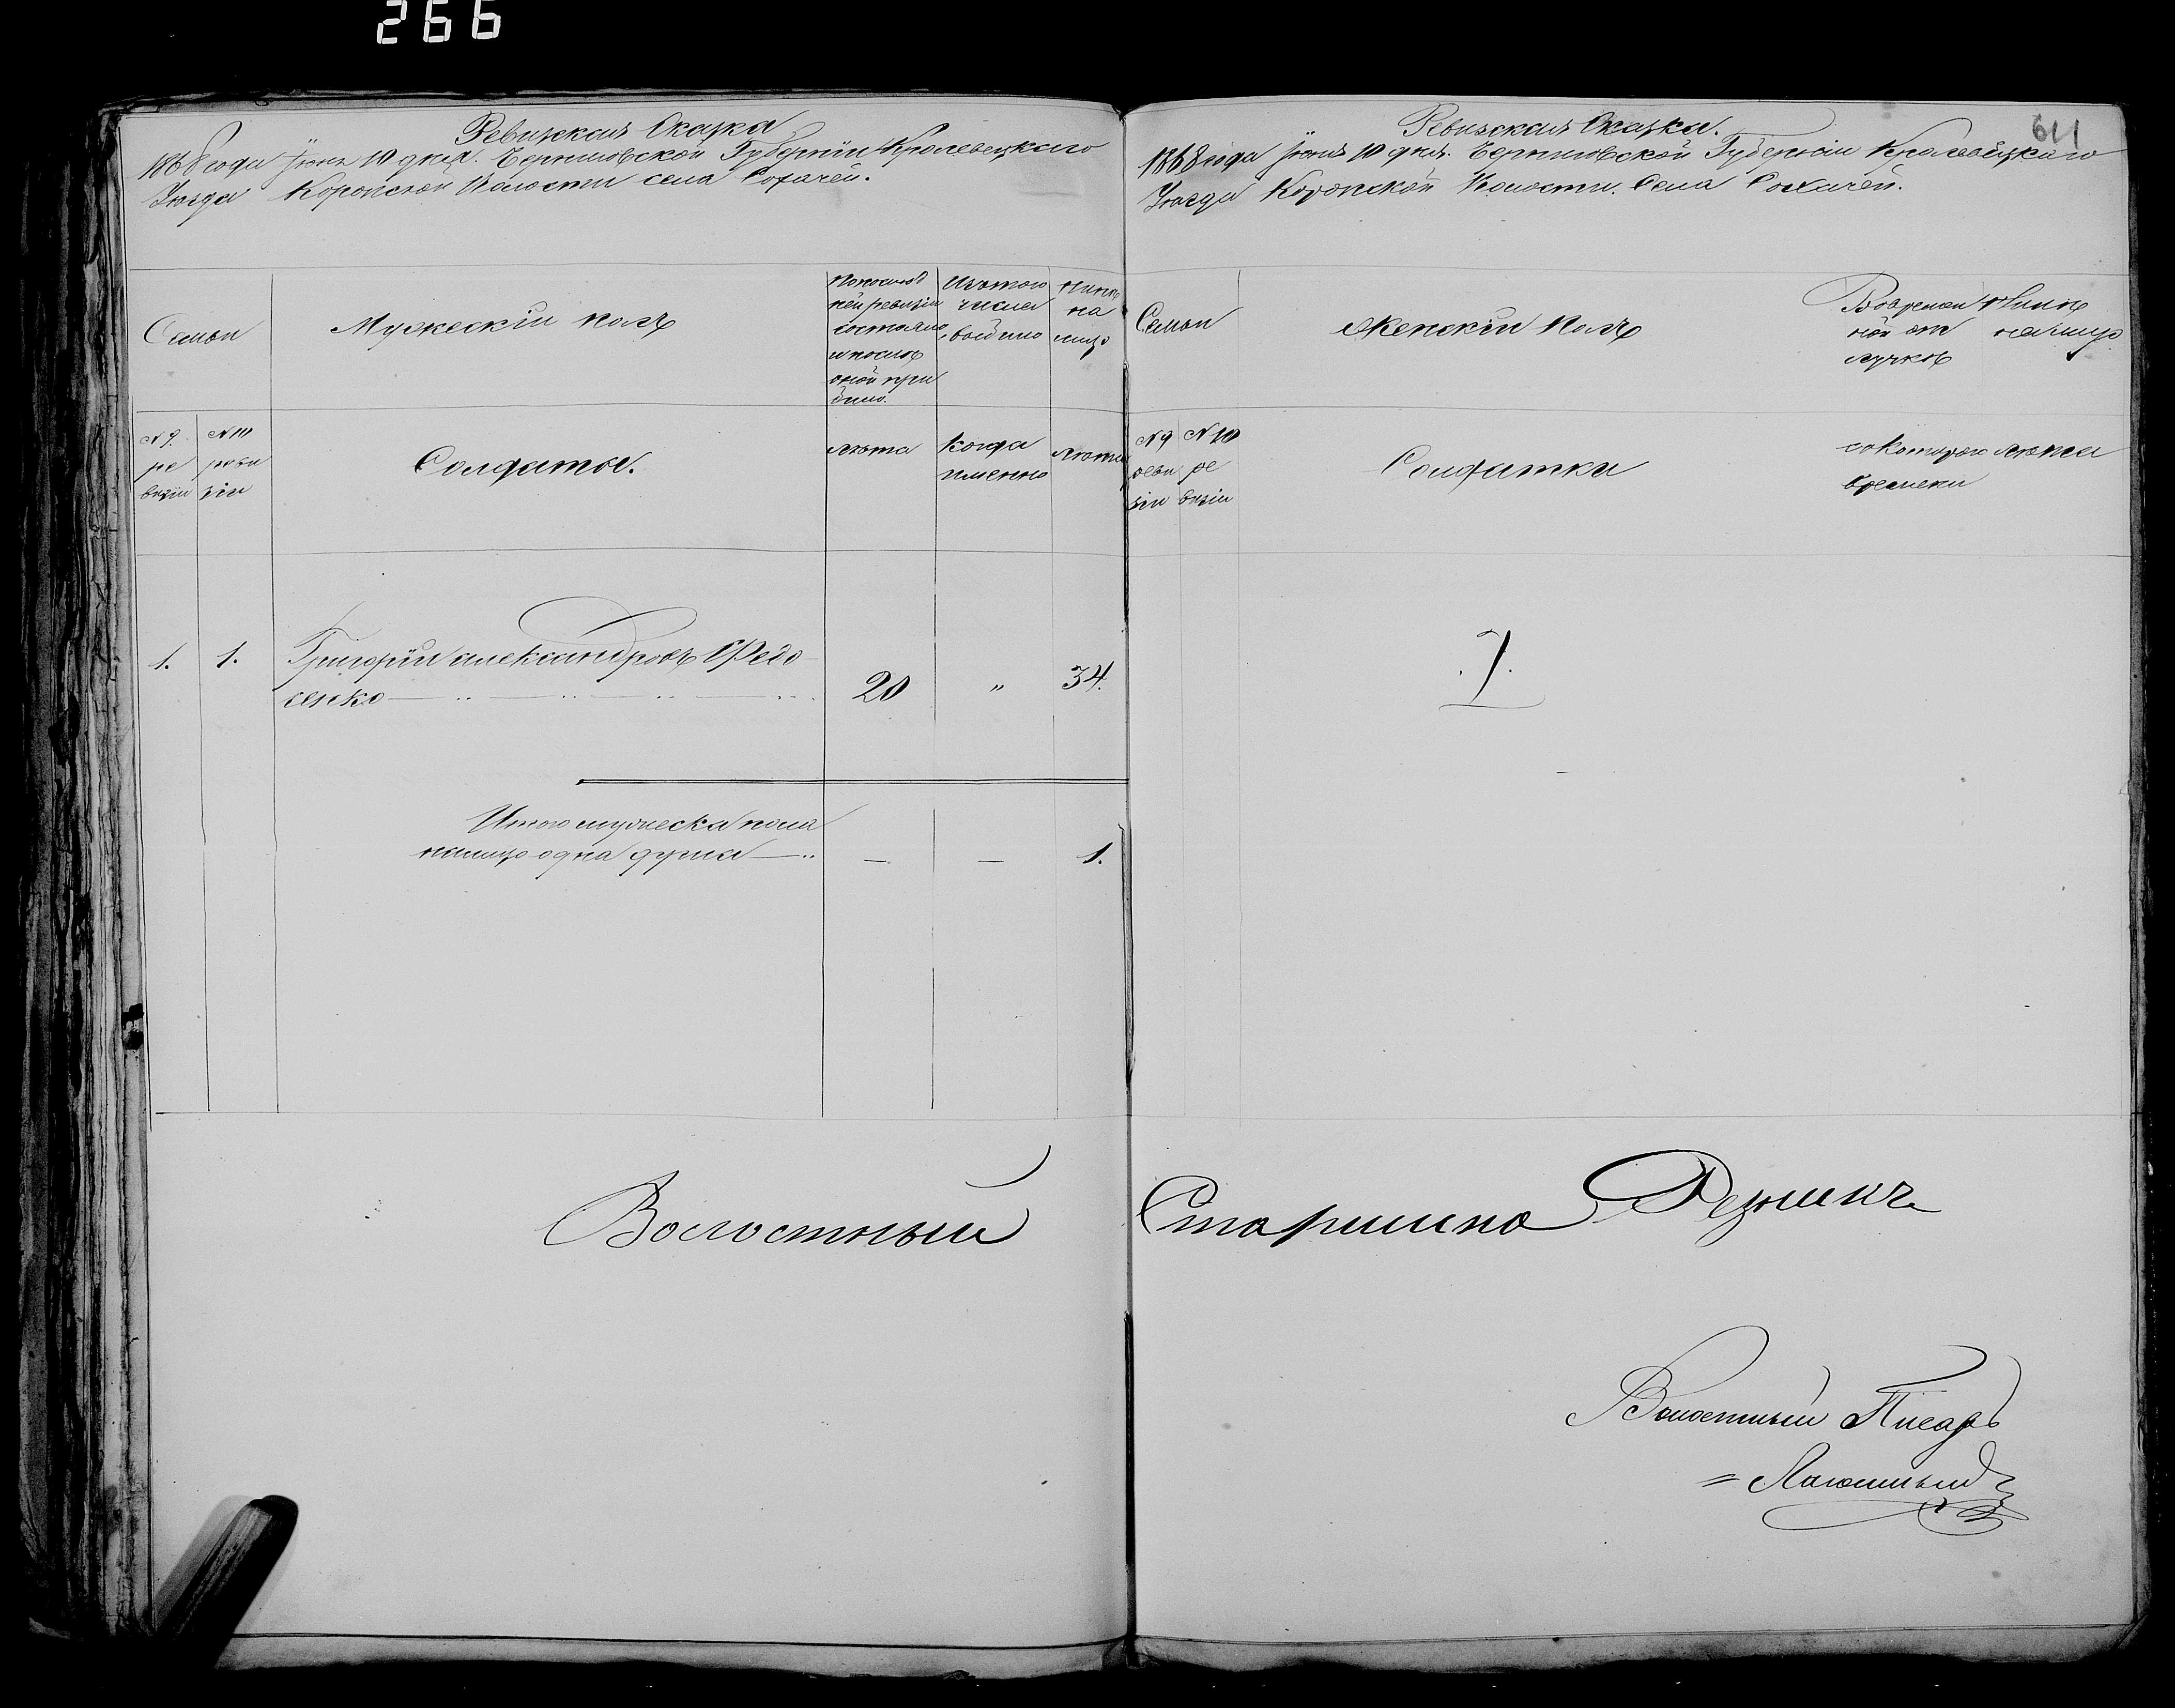 266
Ревизская Сказка
1858 года Іюня 10 дня. Черниговской Губерніи Кролевецкаго
Уѣзда Коропской Волости села Сохачей.
Семьи
Мужескій полъ
По послѣд
ней ревизіи
состояло
и послѣ
оной при
было.
Изъ того
числа
выбыло
Нынѣ
на
лицо
№ 9.
ре
визіи
№ 10
реви
зіи
Солдаты.
лѣта
Когда
именно
Лѣта
1. 1. Григорій Александровъ Федо
сенко 20 " 34.
Итого мужеска пола
налицо одна душа — — 1.
Волостный
611
Ревизская Сказка.
1858 года Іюня 10 дня. Черниговской Губерніи Кролевецкаго
Уѣзда Коропской Волости. Села Сохачей.
Семьи
Женскій Полъ
Во времен
ной от
лучкѣ
Нынѣ
налицо
№ 9
реви
зіи
№ 10
ре
визіи
Солдатки
съ котораго
времени
лѣта
Старшина
Волостный Писарь